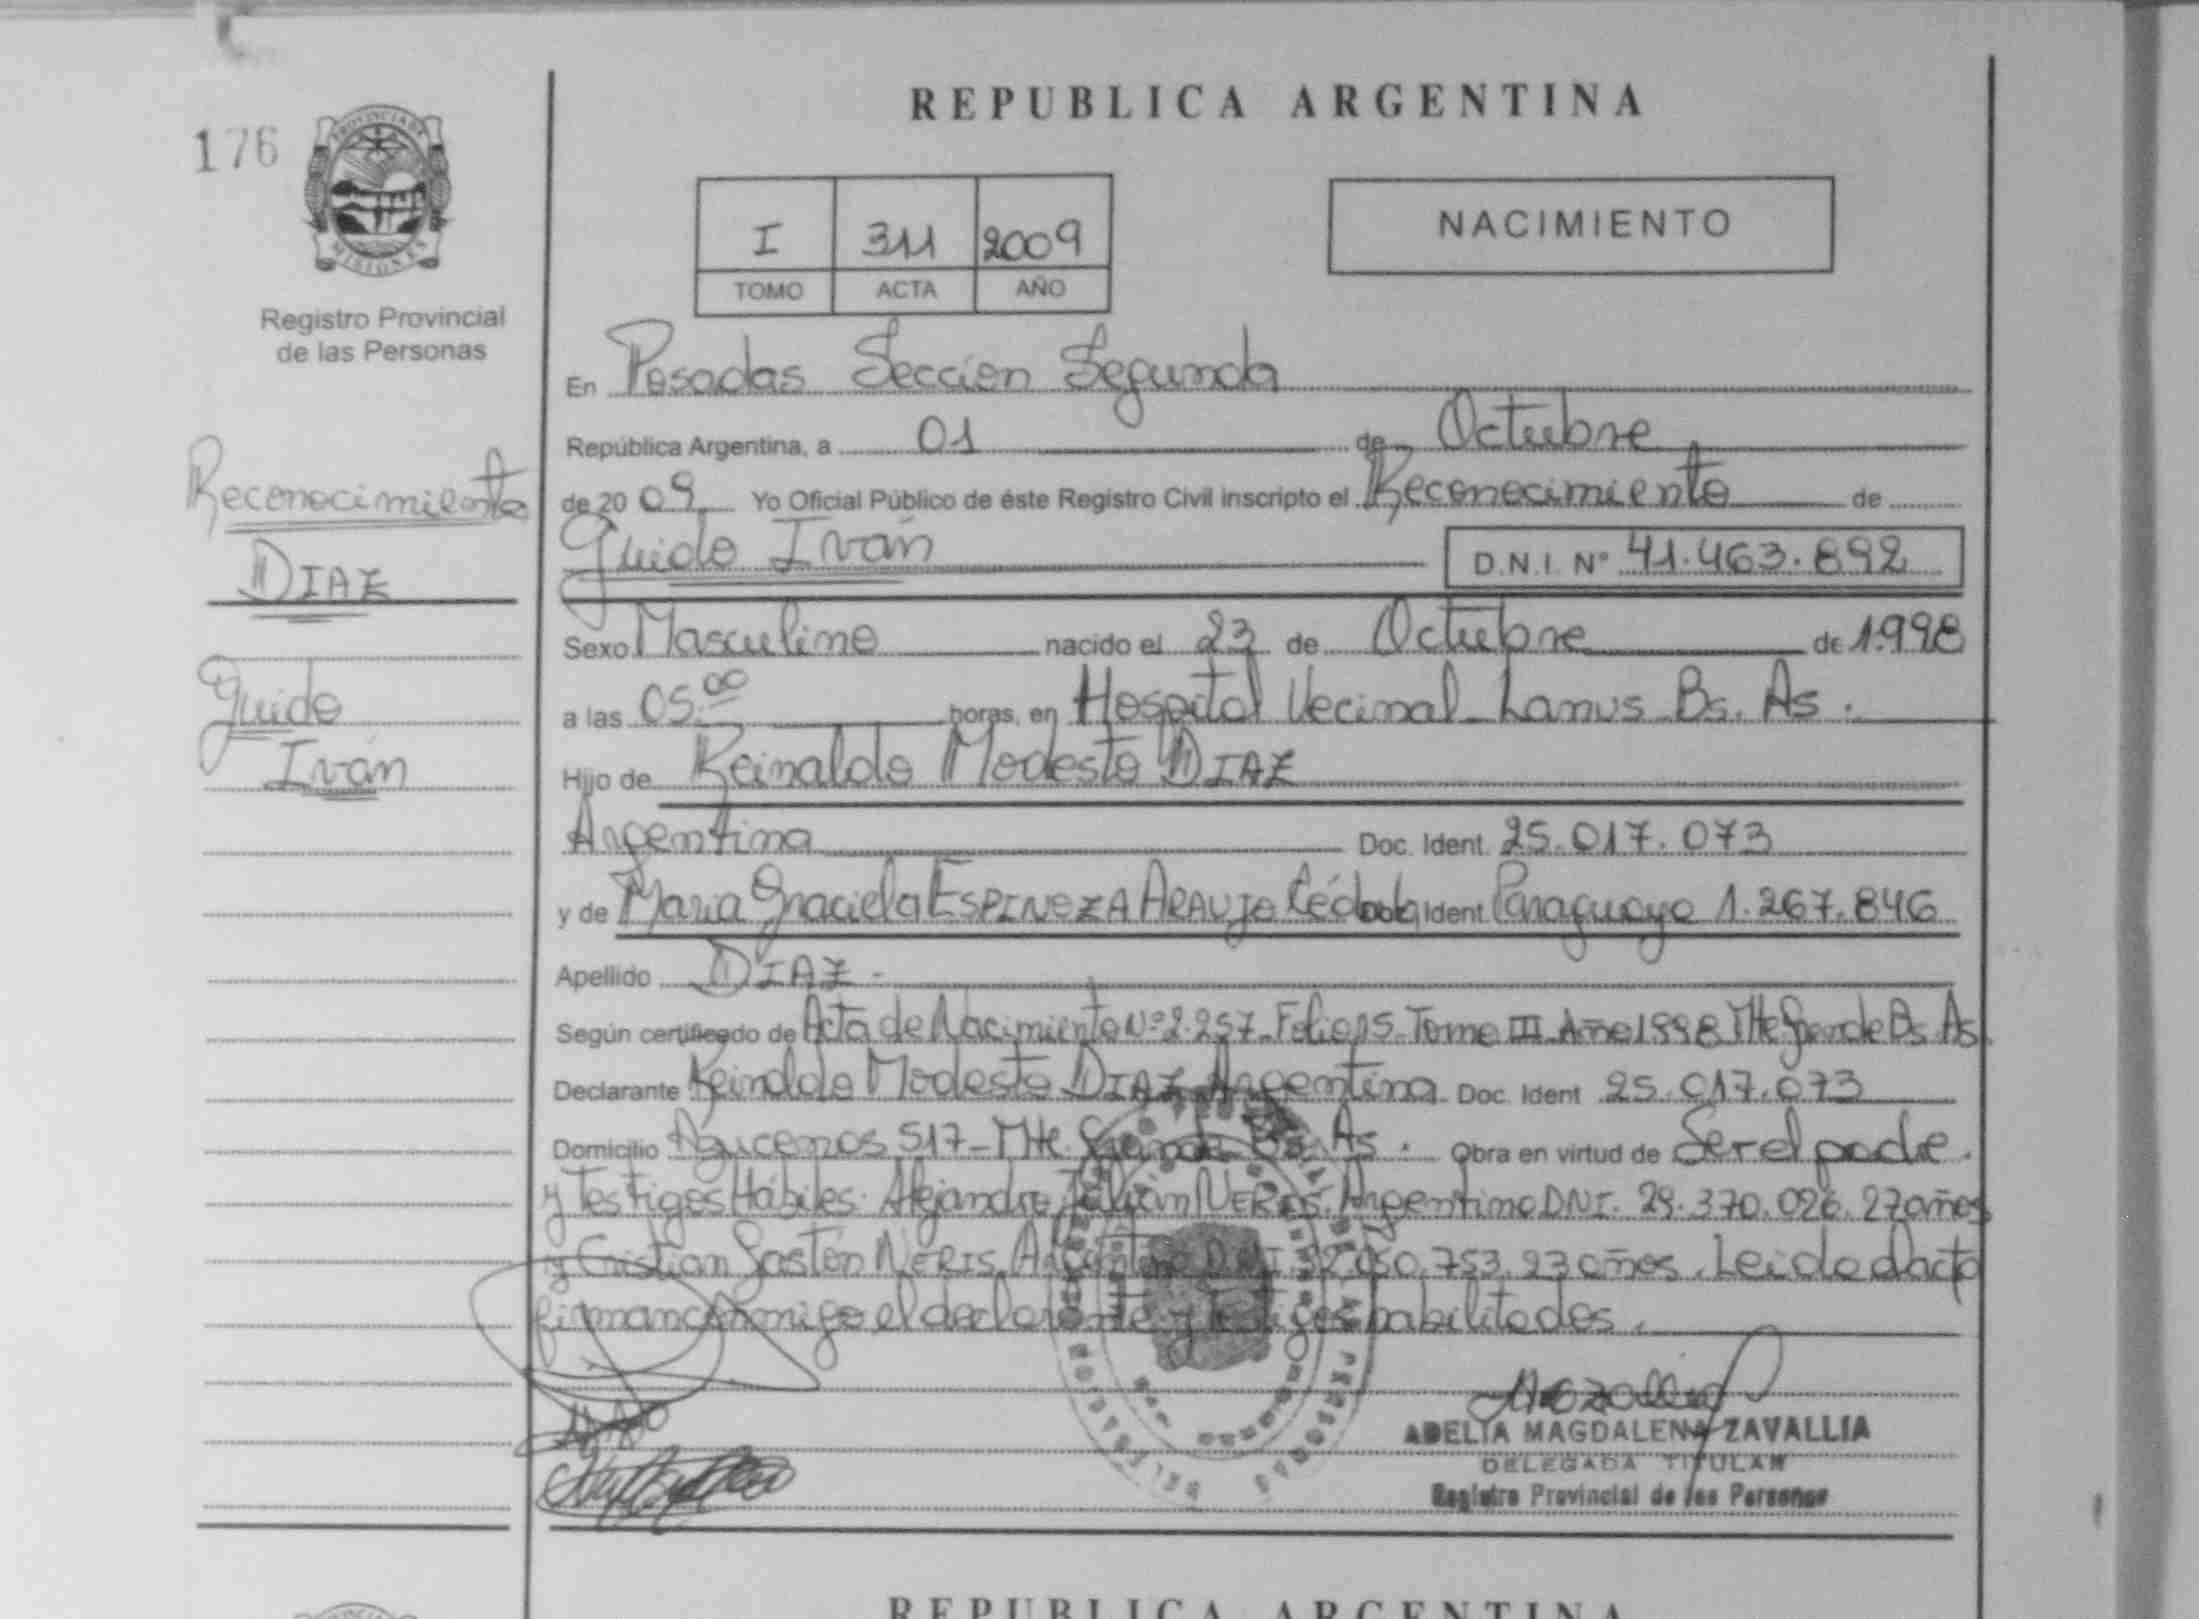 REPUBLICA ARGENTINA
176
PROVINCIA DE
MISIONES
Registro Provincial
de las Personas
I 311 2009
TOMO ACTA AÑO
NACIMIENTO
En Posadas Sección Segunda
República Argentina, a 01 de Octubre
de 2009 Yo Oficial Público de éste Registro Civil inscripto el Reconocimiento de
Guido Iván D.N.I. Nº 41.463.892
Sexo Masculino nacido el 23 de Octubre de 1.998
a las 05.00 horas, en Hospital Vecinal Lanus Bs. As.
Hijo de Reinaldo Modesto DIAZ
Argentina Doc. Ident. 25.017.073
y de Maria Graciela ESPINOZA ARAUJO Cédula Ident Paraguaya 1.267.846
Apellido DIAZ.-
Según certificado de Acta de Nacimiento Nº 2.257. Folio 15. Tomo III. Año 1998 Mte Grande Bs. As.
Declarante Reinaldo Modesto DIAZ Argentina Doc. Ident 25.017.073
Domicilio Azucenas 517- Mte. Grande Bs. As. Obra en virtud de Ser el padre.
y Testigos Hábiles: Alejandro Julian NERIS. Argentino DNI. 29.370.026. 27 años
y Cristian Gastón NERIS. Argentino D.N.I. 32.050.753. 23 años. Leida el acta
firman conmigo el declarante y testigos habilitados.
ADELIA MAGDALENA ZAVALLIA
DELEGADA TITULAR
Registro Provincial de las Personas
Reconocimiento
DIAZ
Guido
Iván
REPUBLICA ARGENTINA